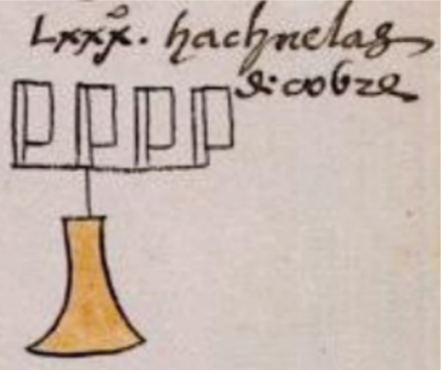 Lxxxº. hachuelas
de cobre